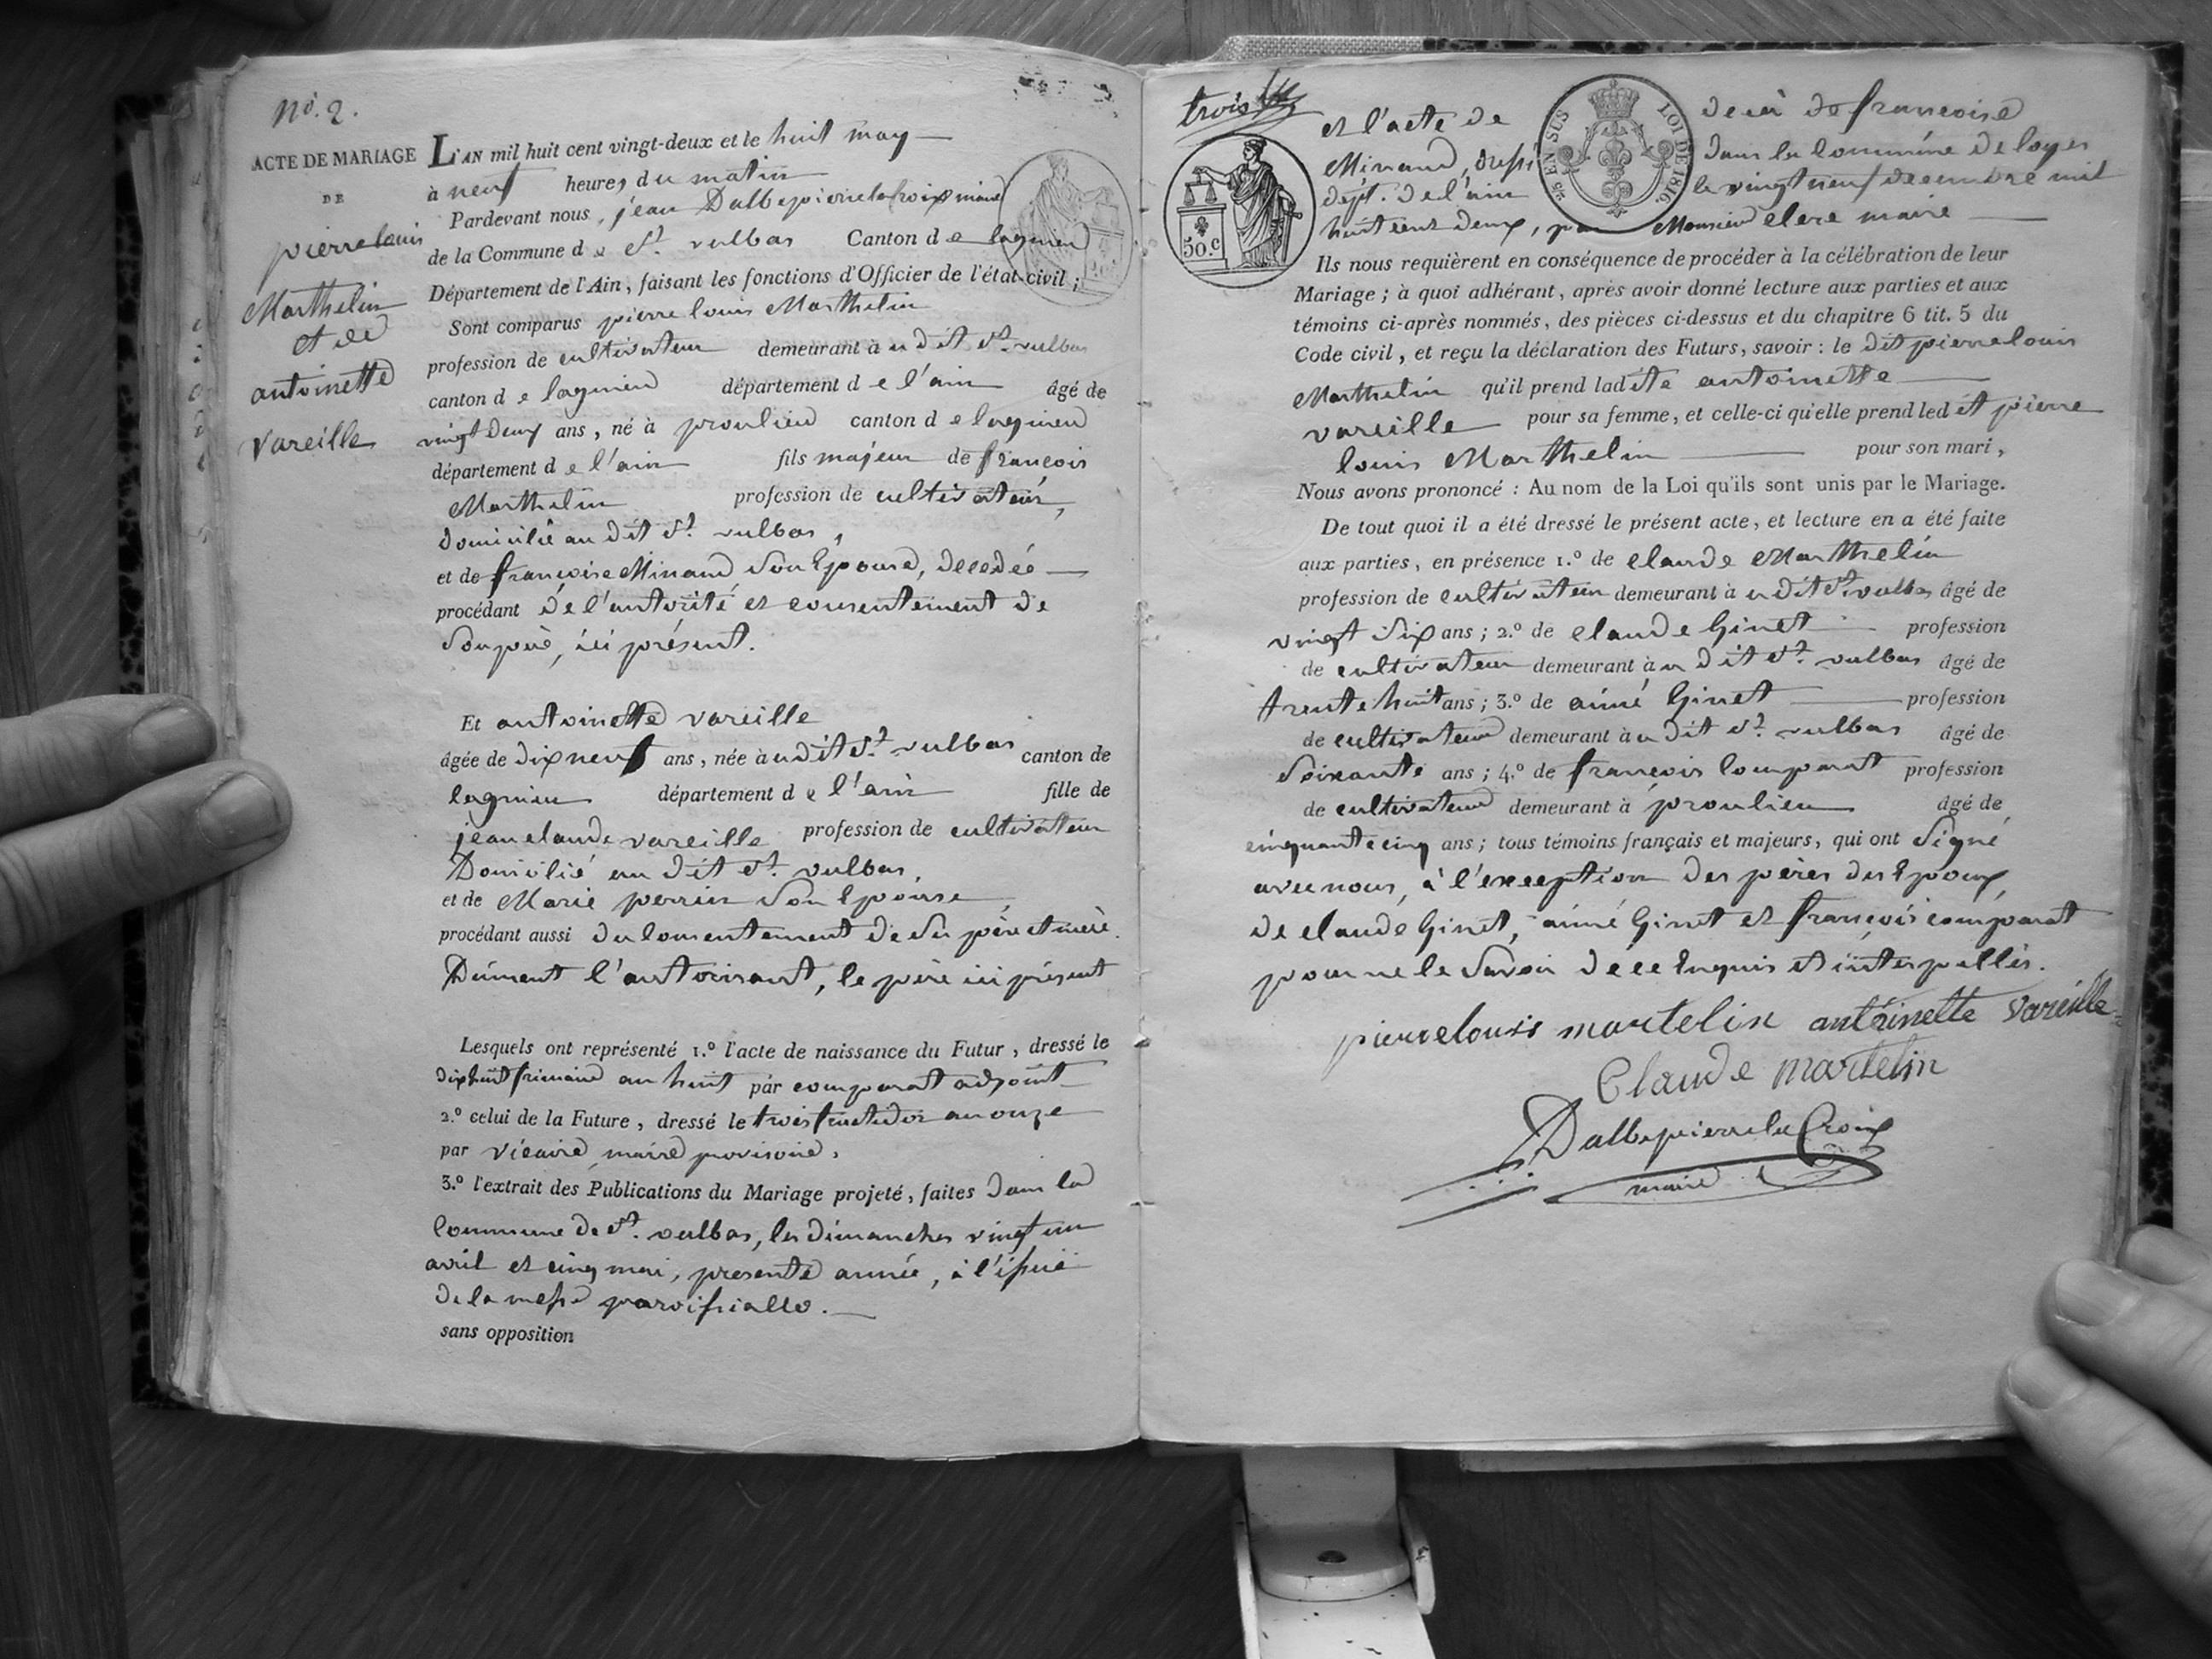 No. 2.
ACTE DE MARIAGE
DE
pierre louis
Marthelin
et de
antoinette
vareille
L'AN mil huit cent vingt-deux et le huit may
à neuf heures du matin
Pardevant nous, jean Dalbepierre lacroix maire
de la Commune de St. vulbas Canton de lagnieu
Département de l'Ain, faisant les fonctions d'Officier de l'état-civil;
Sont comparus pierre louis Marthelin
profession de cultivateur demeurant à u dit St. vulbas
canton de lagnieu département de l'ain âgé de
vingt deux ans, né à proulieu canton de lagnieu
département de l'ain fils majeur de francois
Marthelin profession de cultivateur,
domicilié au dit St. vulbas,
et de françoise Minand son Epouse, decedée
procédant de l'autorité et consentement de
son père, ici présent.
Et antoinette vareille
âgée de dix neuf ans, née à u dit St. vulbas canton de
lagnieu département de l'ain fille de
jean claude vareille profession de cultivateur
Domicilié au dit St. vulbas,
et de Marie perrin son Epouse,
procédant aussi du consentement de ses père et mère.
Dûment l'autorisant, le père ici présent
Lesquels ont représenté 1.º l'acte de naissance du Futur, dressé le
dix huit frimaire an huit par comparat adjoint
2.º celui de la Future, dressé le trois fructidor an onze
par vicaire, maire provisoire,
3.º l'extrait des Publications du Mariage projeté, faites dans la
Commune de St. vulbas, les dimanches vingt un
avril et cinq mai, presente année, à l'issue
de la messe paroissialle.
sans opposition
trois
et l'acte de decès de francoise
Minand, dressé dans la commune de loyes
dépt. de l'ain le vingt neuf decembre mil
huit cent deux, par Monsieur clerc maire
50.c
25 EN SUS LOI DE 1816.
Ils nous requièrent en conséquence de procéder à la célébration de leur
Mariage; à quoi adhérant, après avoir donné lecture aux parties et aux
témoins ci-après nommés, des pièces ci-dessus et du chapitre 6 tit. 5 du
Code civil, et reçu la déclaration des Futurs, savoir: le dit pierre louis
Marthelin qu'il prend ladite antoinette
vareille pour sa femme, et celle-ci qu'elle prend ledit pierre
louis Marthelin pour son mari,
Nous avons prononcé: Au nom de la Loi qu'ils sont unis par le Mariage.
De tout quoi il a été dressé le présent acte, et lecture en a été faite
aux parties, en présence 1.º de claude Marthelin
profession de cultivateur demeurant à u dit St. vulbas âgé de
vingt six ans; 2.º de claude Ginet profession
de cultivateur demeurant à u dit St. vulbas âgé de
trente huit ans; 3.º de aimé Ginet profession
de cultivateur demeurant à u dit St. vulbas âgé de
soixante ans; 4.º de françois Comparat profession
de cultivateur demeurant à proulieu âgé de
cinquante cinq ans; tous témoins français et majeurs, qui ont signé
avec nous, à l'exception des pères des Epoux,
de claude Ginet, aimé Ginet et françois comparat
pour ne le savoir de ce Enquis et interpellés.
pierre louis martelin antoinette Vareille
Claude martelin
Dalbepierre la Croix
maire